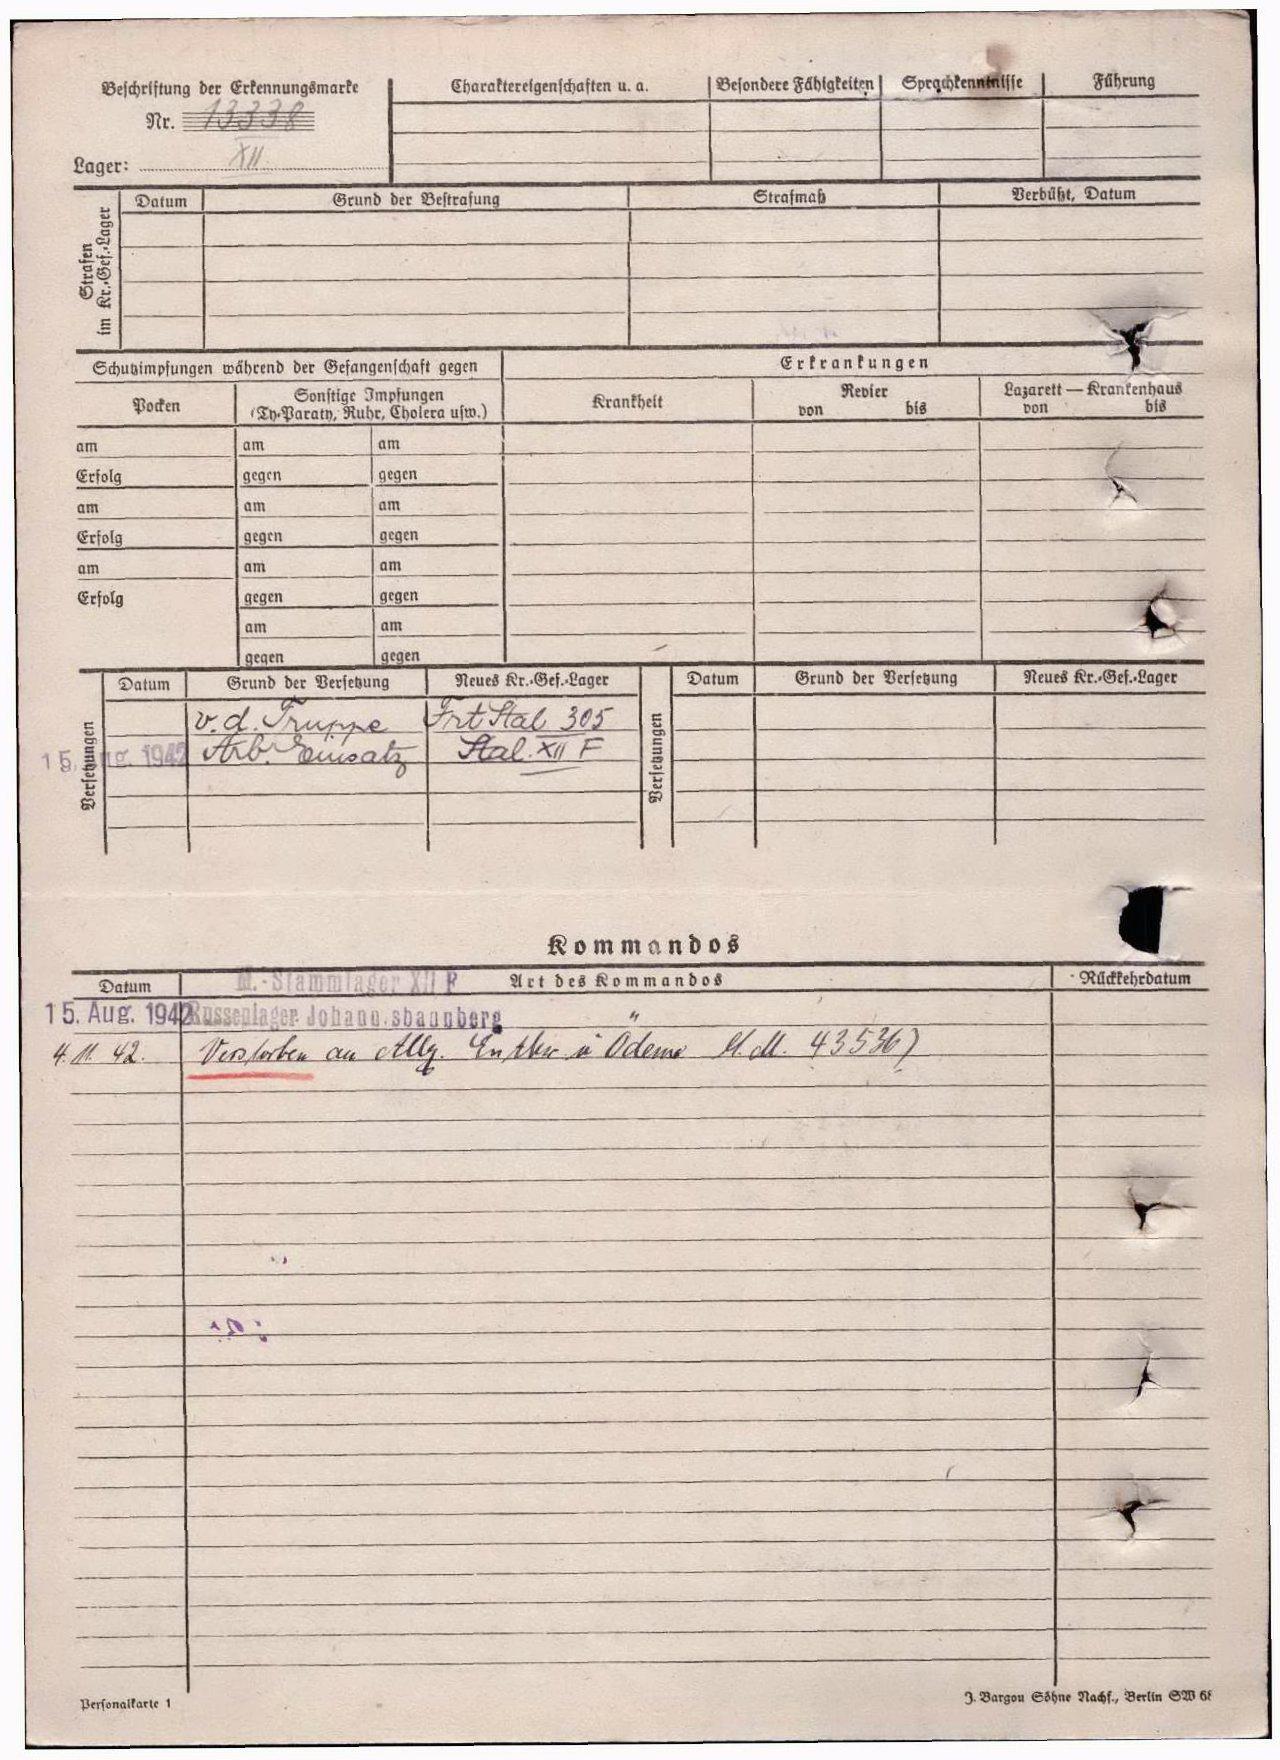 Beschriftung der Erkennungsmarke
Nr. 13338
Lager: XII
Charaktereigenschaften u. a.
Besondere Fähigkeiten
Sprachkenntnisse
Führung
Strafen im Kr.-Gef.-Lager
Datum
Grund der Bestrafung
Strafmaß
Verbüßt, Datum
Schutzimpfungen während der Gefangenschaft gegen
Erkrankungen
Pocken
Sonstige Impfungen
(Ty.-Paraty, Ruhr, Cholera usw.)
Krankheit
Revier
von bis
Lazarett — Krankenhaus
von bis
am am am
Erfolg gegen gegen
am am am
Erfolg gegen gegen
am am am
Erfolg gegen gegen
am am
gegen gegen
Versetzungen
Datum Grund der Versetzung Neues Kr.-Gef.-Lager
v. d. Truppe Frt Stal. 305
15. Aug. 1942 Arb. Einsatz Stal. XII F
Versetzungen
Datum Grund der Versetzung Neues Kr.-Gef.-Lager
Kommandos
Datum Art des Kommandos Rückkehrdatum
M.-Stammlager XII F
15. Aug. 1942 Russenlager Johann.sbannberg "
4. 11. 42. Verstorben an Allg. u Ödeme 43536)
Personalkarte 1
J. Bargou Söhne Nachf., Berlin SW 68